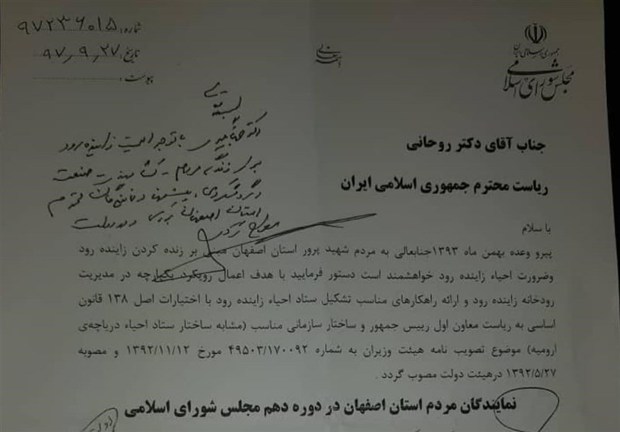 شماره: ۹۷۲۳۶۰۱۵
تاریخ: ۹۷٫۹٫۲۷
پیوست:
جمهوری اسلامی ایران
مجلس شورای اسلامی
بسمه تعالی
با توجه اهمیت زاینده رود
برای زندگی مردم - کشاورزی - صنعت
و گردشگری، پیشنهاد نمایندگان محترم
استان اصفهان بررسی و در دولت
مطرح گردد
جناب آقای دکتر روحانی
ریاست محترم جمهوری اسلامی ایران
با سلام
پیرو وعده بهمن ماه ۱۳۹۳جنابعالی به مردم شهید پرور استان اصفهان مبنی بر زنده کردن زاینده رود
وضرورت احیاء زاینده رود خواهشمند است دستور فرمایید با هدف اعمال رویکرد یکپارچه در مدیریت
رودخانه زاینده رود و ارائه راهکارهای مناسب تشکیل ستاد احیاء زاینده رود با اختیارات اصل ۱۳۸ قانون
اساسی به ریاست معاون اول رییس جمهور و ساختار سازمانی مناسب (مشابه ساختار ستاد احیاء دریاچه‌ی
ارومیه) موضوع تصویب نامه هیئت وزیران به شماره ۴۹۵۰۳/۱۷۰۰۹۲ مورخ ۱۳۹۲/۱۱/۱۲ و مصوبه
۱۳۹۲/۵/۲۷ درهیئت دولت مصوب گردد .
نمایندگان مردم استان اصفهان در دوره دهم مجلس شورای اسلامی